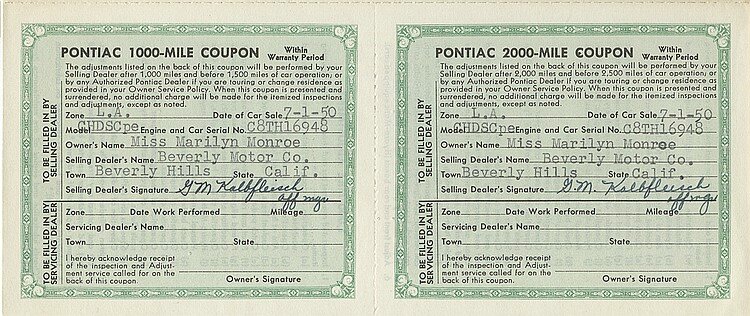 PONTIAC 1000-MILE COUPON Within Warranty Period
The adjustments listed on the back of this coupon will be performed by your
Selling Dealer after 1,000 miles and before 1,500 miles of car operation; or
by any Authorized Pontiac Dealer if you are touring or change residence as
provided in your Owner Service Policy. When this coupon is presented and
surrendered, no additional charge will be made for the itemized inspections
and adjustments, except as noted.
TO BE FILLED IN BY
SELLING DEALER
Zone L.A. Date of Car Sale 7-1-50
Model CHDSCpe Engine and Car Serial No. C8TH16948
Owner's Name Miss Marilyn Monroe
Selling Dealer's Name Beverly Motor Co.
Town Beverly Hills State Calif.
Selling Dealer's Signature G.M. Kalbfleisch
off mgr
TO BE FILLED IN BY
SERVICING DEALER
Zone Date Work Performed Mileage
Servicing Dealer's Name
Town State
I hereby acknowledge receipt
of the inspection and Adjust-
ment service called for on the
back of this coupon.
Owner's Signature
PONTIAC 2000-MILE COUPON Within Warranty Period
The adjustments listed on the back of this coupon will be performed by your
Selling Dealer after 2,000 miles and before 2,500 miles of car operation; or
by any Authorized Pontiac Dealer if you are touring or change residence as
provided in your Owner Service Policy. When this coupon is presented and
surrendered, no additional charge will be made for the itemized inspections
and adjustments, except as noted.
TO BE FILLED IN BY
SELLING DEALER
Zone L.A. Date of Car Sale 7-1-50
Model CHDSCpe Engine and Car Serial No. C8TH16948
Owner's Name Miss Marilyn Monroe
Selling Dealer's Name Beverly Motor Co.
Town Beverly Hills State Calif.
Selling Dealer's Signature G.M. Kalbfleisch
off mgr
TO BE FILLED IN BY
SERVICING DEALER
Zone Date Work Performed Mileage
Servicing Dealer's Name
Town State
I hereby acknowledge receipt
of the inspection and Adjust-
ment service called for on the
back of this coupon.
Owner's Signature